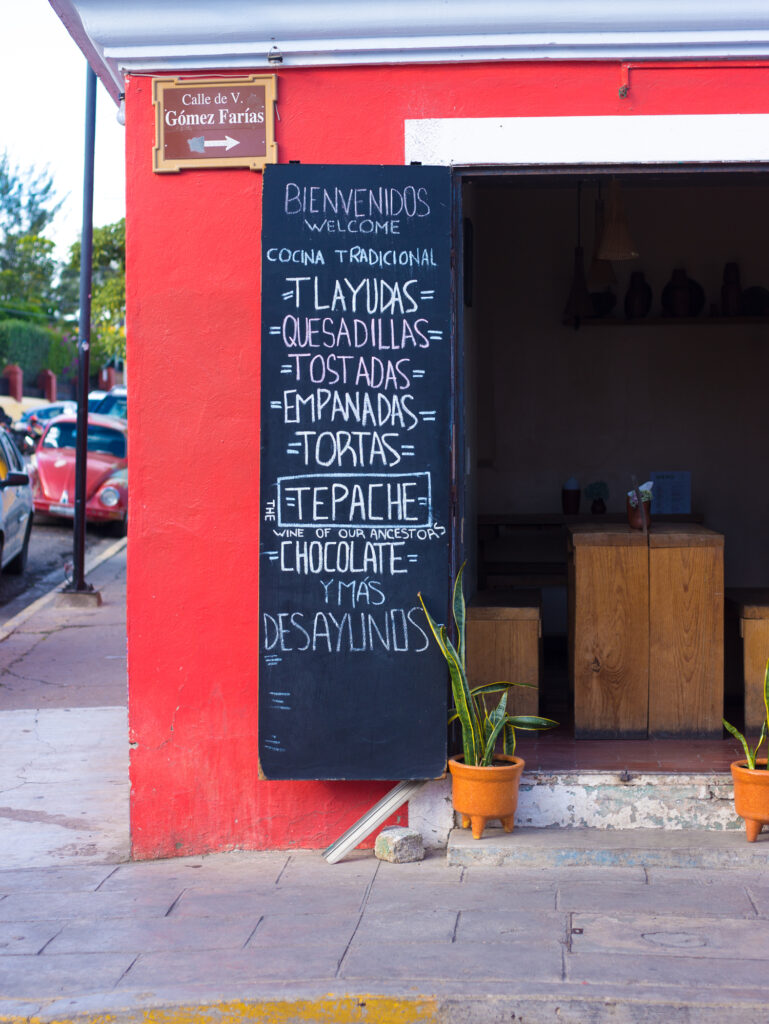 Calle de V.
Gómez Farías
BIENVENIDOS
WELCOME
COCINA TRADICIONAL
=TLAYUDAS=
=QUESADILLAS=
=TOSTADAS=
=EMPANADAS=
=TORTAS=
=TEPACHE=
THE
WINE OF OUR ANCESTORS
=CHOCOLATE=
Y MÁS
DESAYUNOS